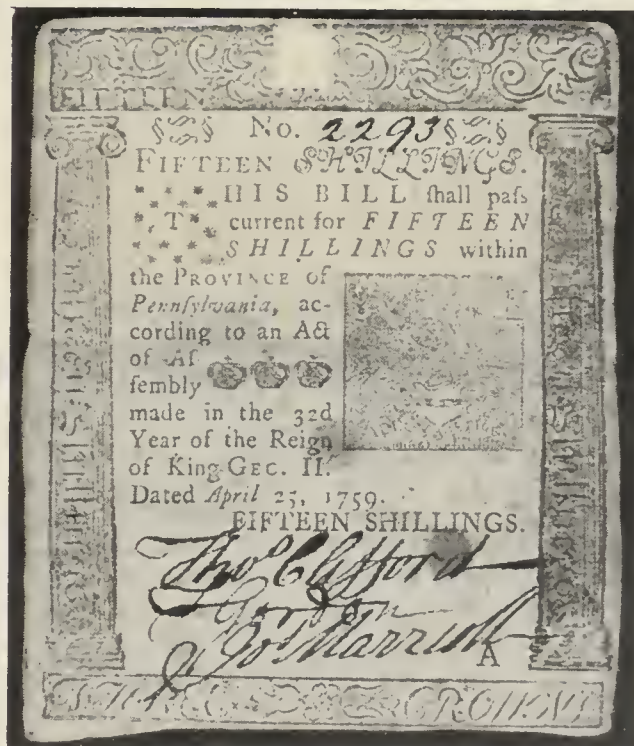 FIFTEEN
No. 2293
FIFTEEN SHILLINGS.
THIS BILL ſhall paſs
current for FIFTEEN
SHILLINGS within
the PROVINCE of
Pennſylvania, ac-
cording to an Act
of Aſ
ſembly
made in the 32d
Year of the Reign
of King GEO. II.
Dated April 25, 1759.
FIFTEEN SHILLINGS.
Tho⁠s Clifford
Jos Marriott
A